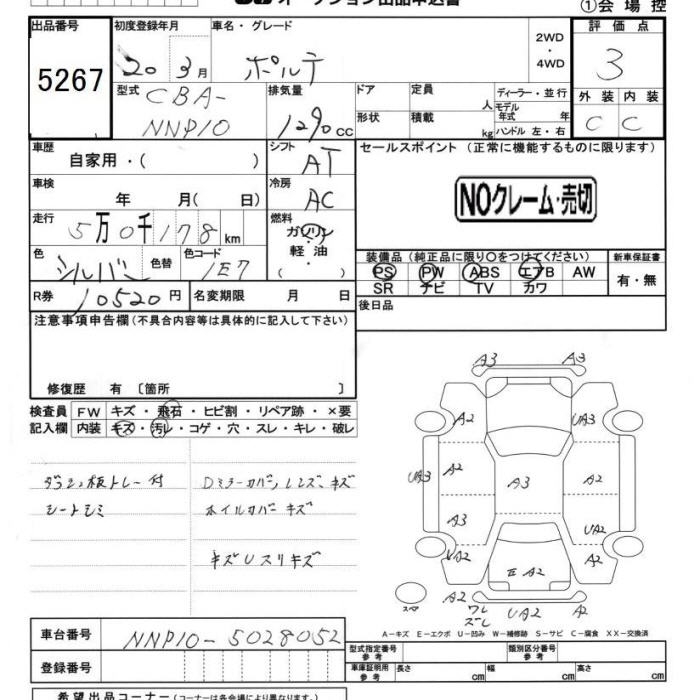 オークション出品申込書
①会場控
出品番号
5267
初度登録年月
20年3月
車名・グレード
ポルテ
2WD
・
4WD
評価点
3
外装 内装
C C
型式
CBA-
NNP10
排気量
1290cc
ドア
形状
定員
人
積載
kg
ディーラー・並行
モデル
年式 年
ハンドル 左・右
車歴
自家用・( )
シフト
AT
セールスポイント (正常に機能するものに限ります)
NOクレーム・売切
車検
年 月( 日)
冷房
AC
走行
5万0千178km
燃料
ガソリン
軽油
・( )
色
シルバー
色替
色コード
1E7
装備品(純正品に限り○をつけてください)
PS PW ABS エアB AW
SR ナビ TV カワ
新車保証書
有・無
R券
10520円
名変期限 月 日
後日品
注意事項申告欄(不具合内容等は具体的に記入して下さい)
修復歴 有 〔箇所 〕
検査員 FW キズ・飛石・ヒビ割・リペア跡・×要
記入欄 内装 キズ・汚レ・コゲ・穴・スレ・キレ・破レ
ダッシュ板トレー付
シートシミ
Dミラーカバー, レンズ, キズ
ホイルカバーキズ
キズUスリキズ
A3 A3
A2 UA3
UA3 A2 A3 A2
A3 UA2
UA2 A2
A2
A2 ワレ UA2 A2
ズレ
スペア
A-キズ E-エクボ U-凹み W-補修跡 S-サビ C-腐食 XX-交換済
車台番号
NNP10-5028052
登録番号
型式指定番号
参考
類別区分番号
参考
車庫証明用
参考
長さ cm 幅 cm 高さ cm
希望出品コーナー(コーナーは各会場により異なります。)